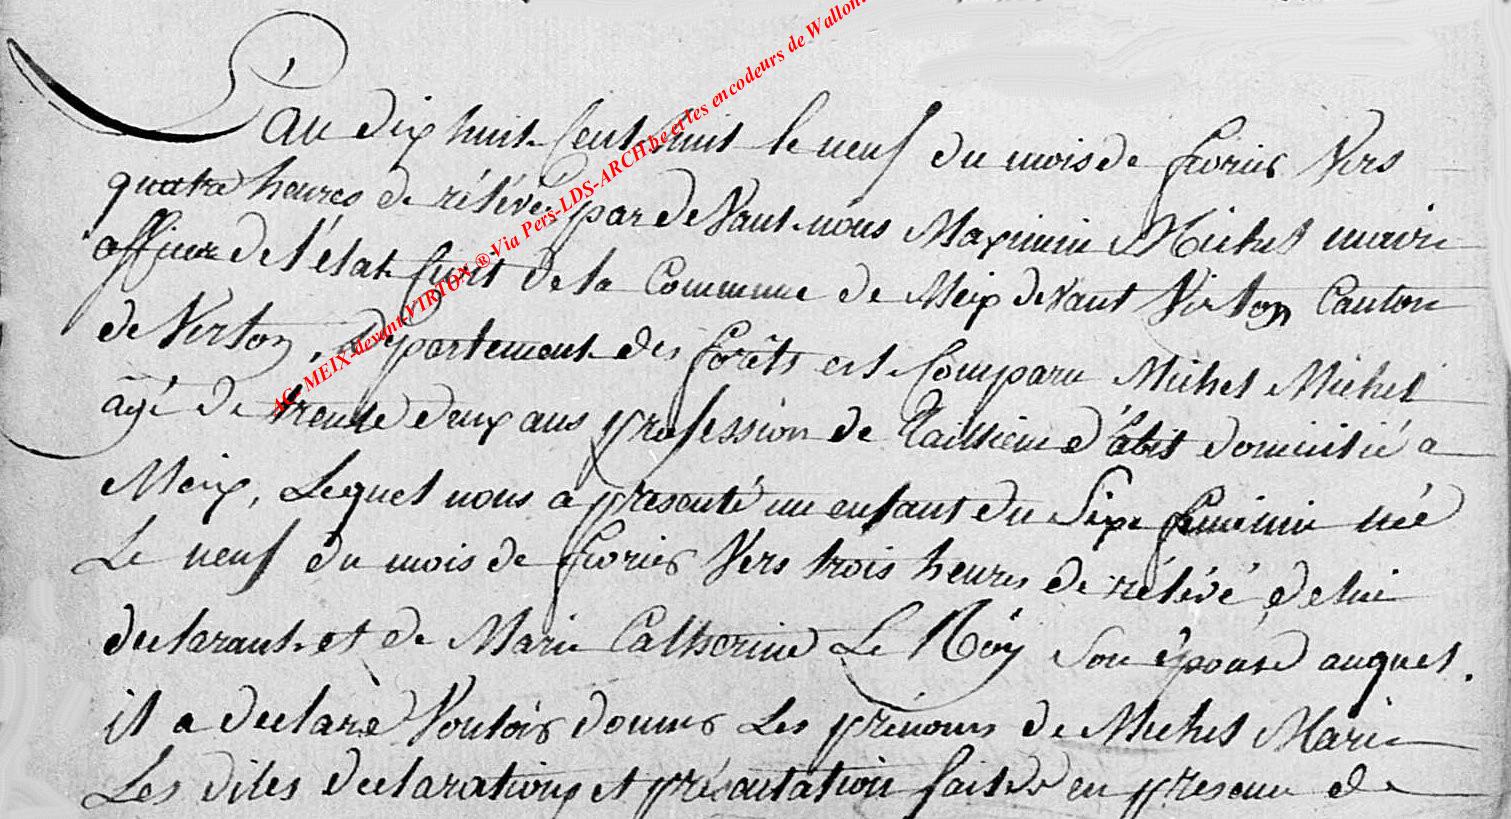 L'an dix huit Cent huit le neuf du mois de fevrier Vers
quatre heures de rélévé, par deVant nous Maximin Michel maire
officier de l'état Civil de la Commune de Meix deVant Virton Canton
de Virton, departement des forêts est Comparu Michel Michel
agé de trente deux ans profession de tailleur d'abit domicilié a
Meix, Lequel nous a presenté un enfant du Sexe feminin née
Le neuf du mois de fevrier Vers trois heures de rélévé, de lui
declarant et de Marie Catherine Le Roy Son épouse auquel.
il a declaré Vouloir donner Les prénoms de Michel Marie
Les dites declarations et présentation faites en presence de
AC_MEIX-devant-VIRTON ® Via Pers-LDS-ARCH.be et les encodeurs de Wallon